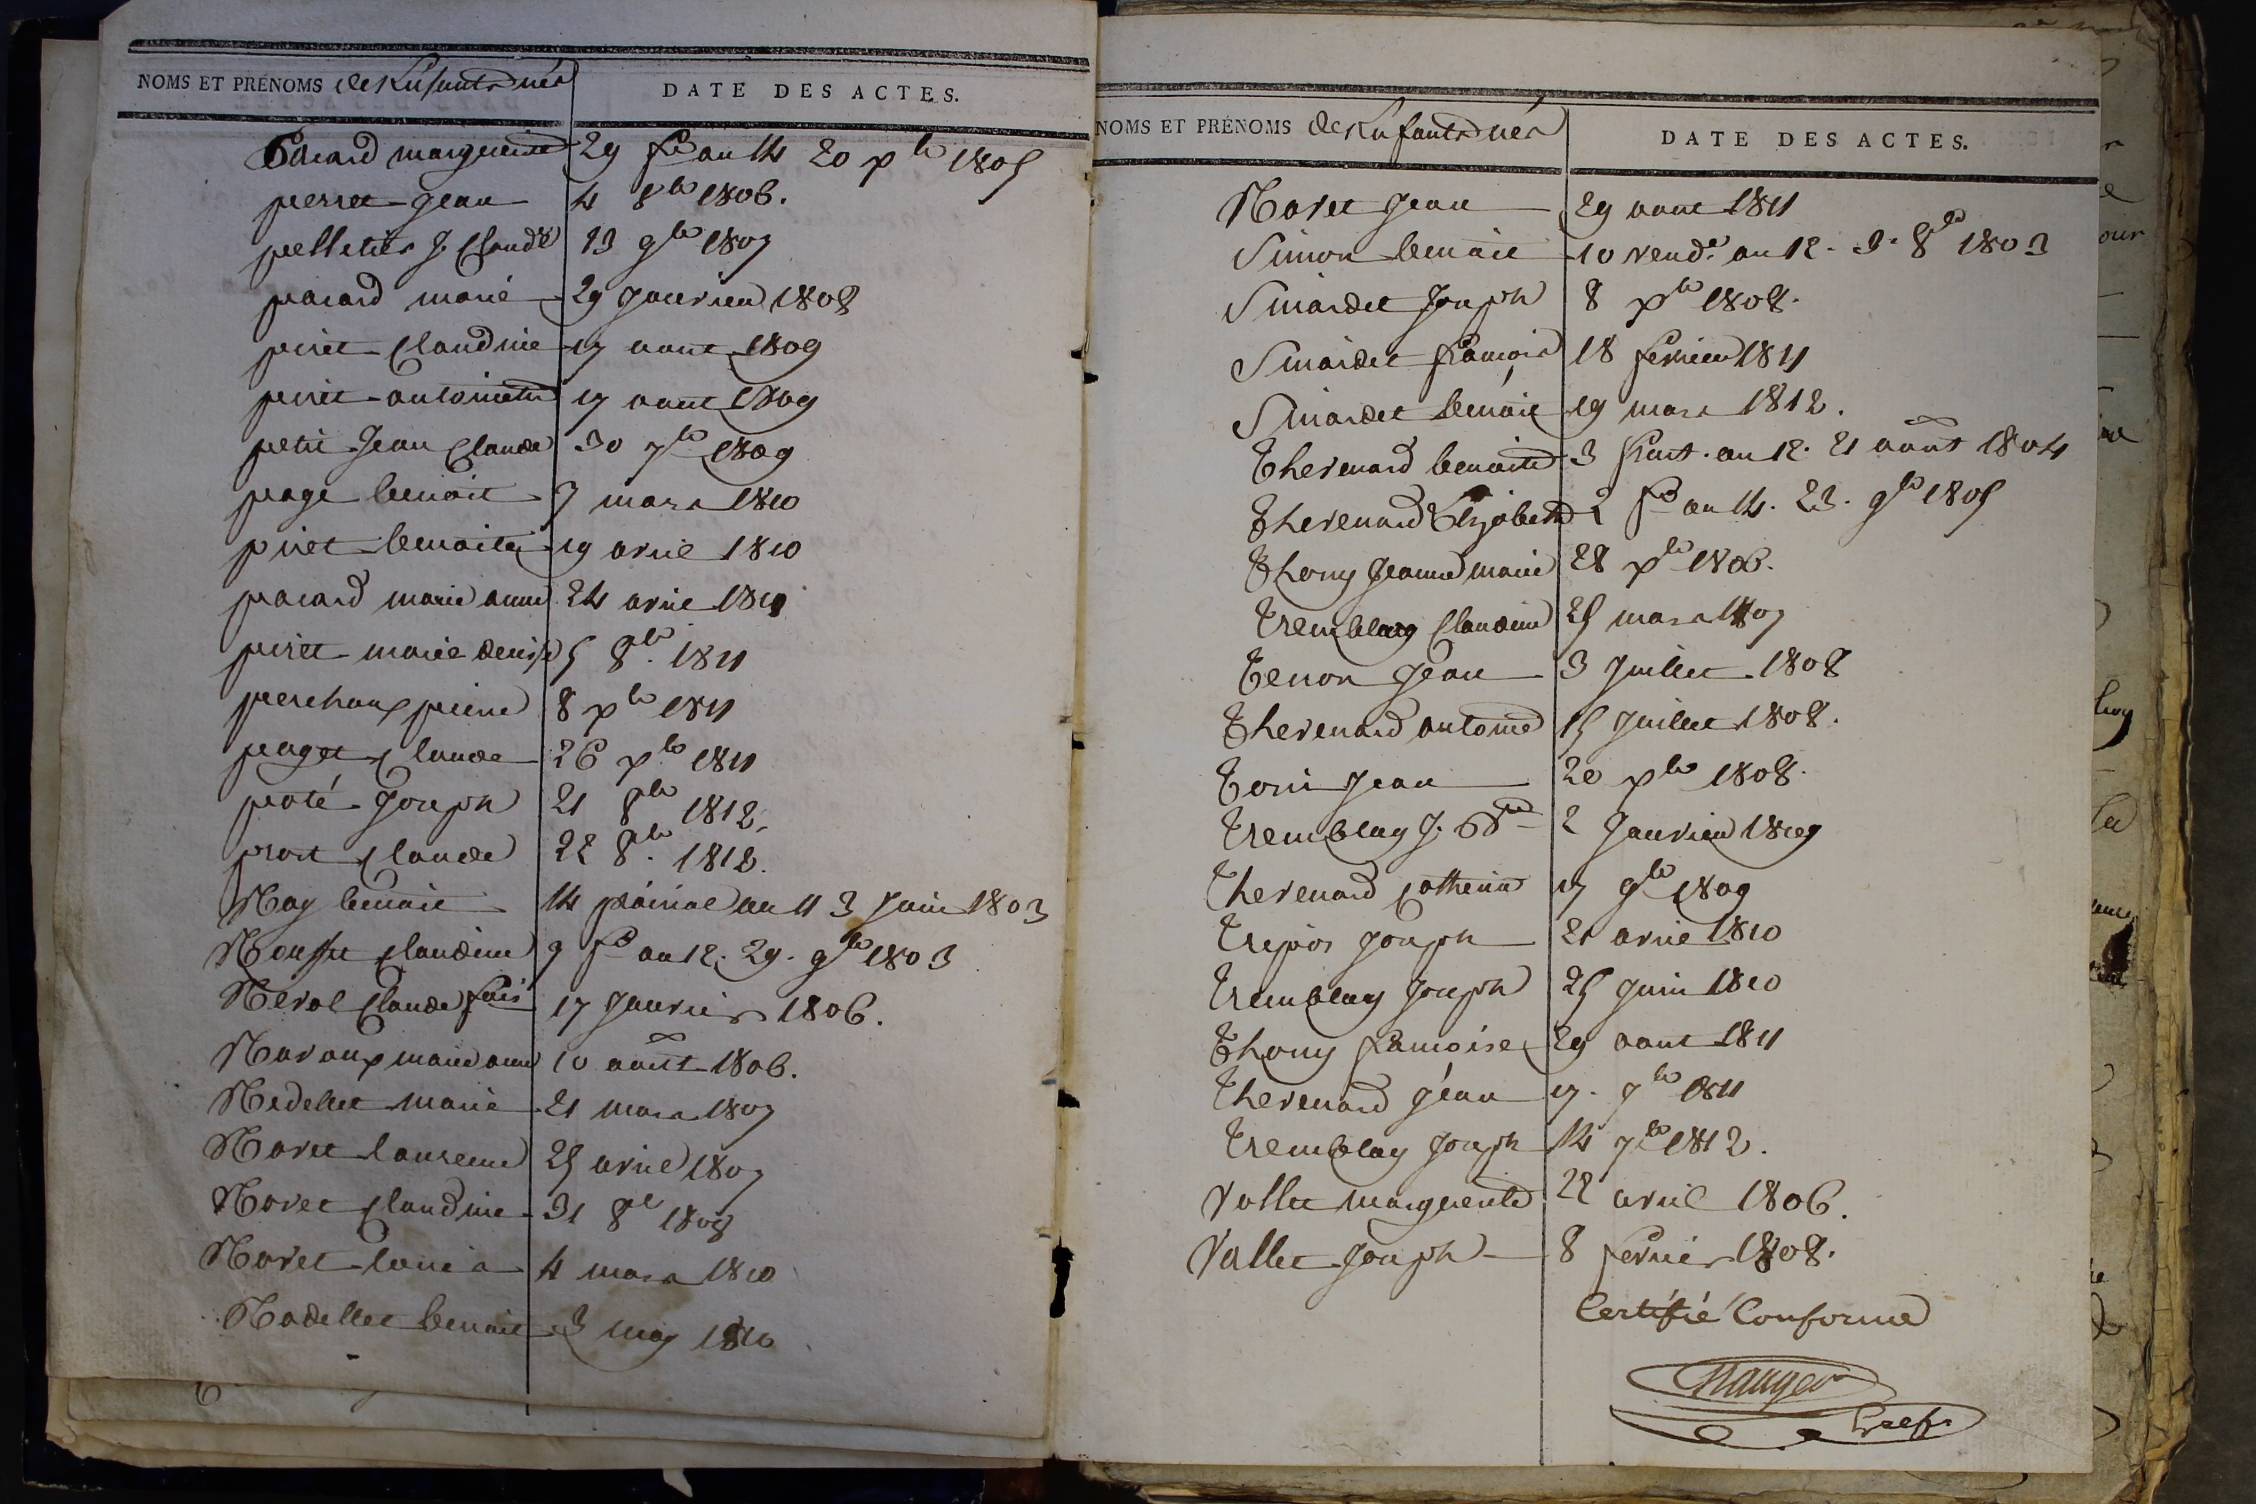 NOMS ET PRÉNOMS des Enfants nés
DATE DES ACTES.
Pacard marguerite 29 f.re an 14 20 x.bre 1805
perret Jean 4 8.bre 1806.
pelletier J. Claude 23 9.bre 1807
pacard marie 29 Janvier 1808
piret Claudine 17 aout 1809
piret antoinette 17 aout 1809
petit Jean Claude 30 7.bre 1809
page benoit 7 mars 1810
piret benoite 19 avril 1810
pacard marie anne 24 avril 1811
piret marie denise 5 8.bre 1811
perchaux pierre 8 x.bre 1811
paget Claude 26 x.bre 1811
paté Joseph 21 8.bre 1812.
prost Claude 22 8.bre 1812.
Ray benoit 14 prairial an 11 3 Juin 1803
Claudine 9 f.re an 12. 29. 9.bre 1803
Revol Claude fois 17 Janvier 1806.
Ravaux marie anne 10 août 1806.
Redellet marie 21 mars 1807
Ravet laurence 25 avril 1807
Ravet Claudine 31 8.e 1808
Ravet louis 4 mars 1810
Radellet benoit 3 may 1810
NOMS ET PRÉNOMS des Enfants nés
DATE DES ACTES.
Ravet Jean 29 aout 1811
Simon benoit 10 vend.e an 12. 3. 8.bre 1803
Smardet Joseph 8 x.bre 1808.
Smardet françois 18 fevrier 1811
Smardet benoit 19 mars 1812.
Thevenard benoite 3 fruct. an 12. 21 août 1804
Thevenard Elizabeth 2 f.re an 14. 23. 9.bre 1805
Thony Jeanne marie 28 x.bre 1806.
Tremblay Claudine 25 mars 1807
Tenon Jean 3 Juillet 1808
Thevenard antoine 15 Juillet 1808.
Toni Jean 20 x.bre 1808.
Tremblay J. 2 Janvier 1809
Thevenard Catherine 17 9.bre 1809
Trepos Joseph 21 avril 1810
Tremblay Joseph 25 Juin 1810
Thony françoise 29 aout 1811
Thevenard Jean 17. 7.bre 1811
Tremblay Joseph 14 7.bre 1812.
Vallet marguerite 22 avril 1806.
Vallet Joseph 8 fevrier 1808.
Certifié Conforme
Greff.